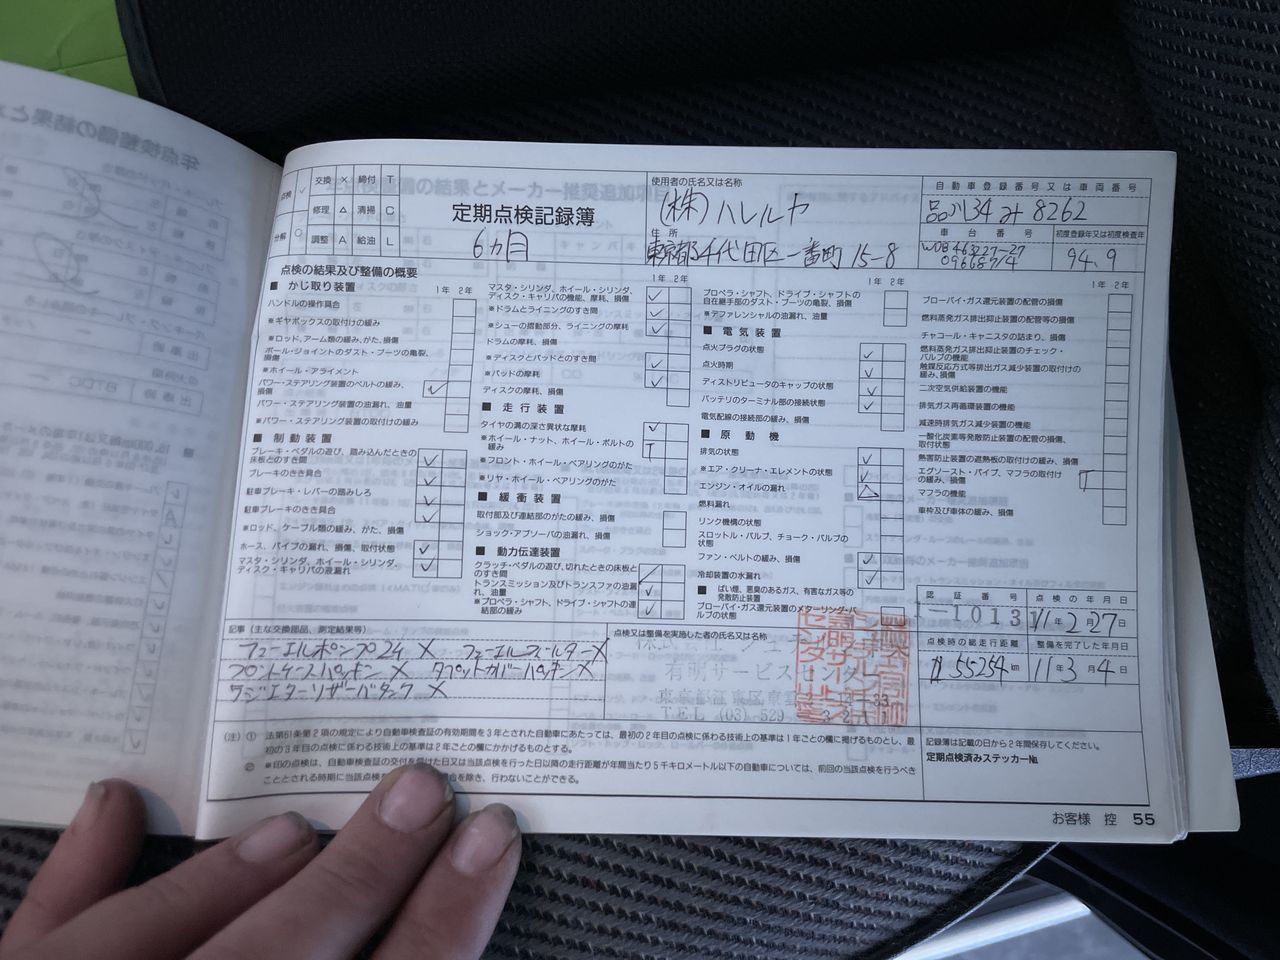 点検 ✓ 交換 × 締付 T
修理 △ 清掃 C
分解 ○ 調整 A 給油 L
定期点検記録簿
6ヵ月
使用者の氏名又は名称
(株)ハレルヤ
住所
東京都千代田区一番町 15-8
自動車登録番号又は車両番号
品川34み8262
車台番号
初度登録年又は初度検査年
WDB463227-27
94.9
点検の結果及び整備の概要
■ かじ取り装置
1年 2年
ハンドルの操作具合
※ギヤボックスの取付けの緩み
※ロッド、アーム類の緩み、がた、損傷
ボール・ジョイントのダスト・ブーツの亀裂、損傷
※ホイール・アライメント
パワー・ステアリング装置のベルトの緩み、損傷 ✓
パワー・ステアリング装置の油漏れ、油量
※パワー・ステアリング装置の取付けの緩み
■ 制動装置
ブレーキ・ペダルの遊び、踏み込んだときの床板とのすき間 ✓
ブレーキのきき具合 ✓
駐車ブレーキ・レバーの踏みしろ ✓
駐車ブレーキのきき具合 ✓
※ロッド、ケーブル類の緩み、がた、損傷
ホース、パイプの漏れ、損傷、取付状態 ✓
マスタ・シリンダ、ホイール・シリンダ、ディスク・キャリパの液漏れ ✓
1年 2年
マスタ・シリンダ、ホイール・シリンダ、ディスク・キャリパの機能、摩耗、損傷 ✓
※ドラムとライニングのすき間 ✓
※シューの摺動部分、ライニングの摩耗 ✓
ドラムの摩耗、損傷
※ディスクとパッドとのすき間 ✓
※パッドの摩耗 ✓
ディスクの摩耗、損傷
■ 走行装置
タイヤの溝の深さ異状な摩耗 ✓
※ホイール・ナット、ホイール・ボルトの緩み T
※フロント・ホイール・ベアリングのがた
※リヤ・ホイール・ベアリングのがた
■ 緩衝装置
取付部及び連結部のがたの緩み、損傷
ショック・アブソーバの油漏れ、損傷
■ 動力伝達装置
クラッチ・ペダルの遊び、切れたときの床板とのすき間
トランスミッション及びトランスファの油漏れ、油量 ✓
※プロペラ・シャフト、ドライブ・シャフトの連結部の緩み ✓
1年 2年
プロペラ・シャフト、ドライブ・シャフトの自在継手部のダスト・ブーツの亀裂、損傷
※デファレンシャルの油漏れ、油量
■ 電気装置
点火プラグの状態 ✓
点火時期 ✓
ディストリビュータのキャップの状態 ✓
バッテリのターミナル部の接続状態 ✓
電気配線の接続部の緩み、損傷
■ 原動機
排気の状態 ✓
※エア・クリーナ・エレメントの状態 ✓
エンジン・オイルの漏れ △
燃料漏れ
リンク機構の状態
スロットル・バルブ、チョーク・バルブの状態
ファン・ベルトの緩み、損傷 ✓
冷却装置の水漏れ ✓
■ ばい煙、悪臭のあるガス、有害なガス等の発散防止装置
ブローバイ・ガス還元装置のメターリング・バルブの状態
1年 2年
ブローバイ・ガス還元装置の配管の損傷
燃料蒸発ガス排出抑止装置の配管等の損傷
チャコール・キャニスタの詰まり、損傷
燃料蒸発ガス排出抑止装置のチェック・バルブの機能
触媒反応方式等排出ガス減少装置の取付けの緩み、損傷
二次空気供給装置の機能
排気ガス再循環装置の機能
減速時排気ガス減少装置の機能
一酸化炭素等発散防止装置の配管の損傷、取付状態
熱害防止装置の遮熱板の取付けの緩み、損傷
エグゾースト・パイプ、マフラの取付けの緩み、損傷 T
マフラの機能
車枠及び車体の緩み、損傷
記事(主な交換部品、測定結果等)
フューエルポンプ24 × フューエルフィルター×
フロントケースパッキン × タペットカバーパッキン×
ラジエターリザーバタンク ×
点検又は整備を実施した者の氏名又は名称
有明サービスセンター
東京都江東区東雲
TEL (03) 529
認証番号
1-1013
点検の年月日
11年2月27日
点検時の総走行距離
55254 km
整備を完了した年月日
11年3月4日
(注) ① 法第61条第2項の規定により自動車検査証の有効期間を3年とされた自動車にあたっては、最初の2年目の点検に係わる技術上の基準は1年ごとの欄に掲げるものとし、最初の3年目の点検に係わる技術上の基準は2年ごとの欄にかかげるものとする。
② ※印の点検は、自動車検査証の交付を受けた日又は当該点検を行った日以降の走行距離が年間当たり5千キロメートル以下の自動車については、前回の当該点検を行うべきこととされる時期に当該点検を
を除き、行わないことができる。
記録簿は記載の日から2年間保存してください。
定期点検済みステッカー№
お客様 控 55